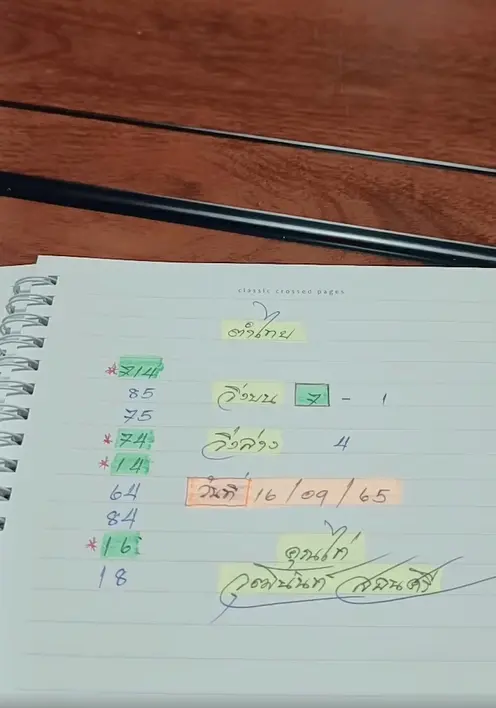 classic crossed pages
ทำไทย
*714
85
วิ่งบน 7 - 1
75
*74
วิ่งล่าง 4
*14
64
วันที่ 16/09/65
84
*16
คุณไก่
18